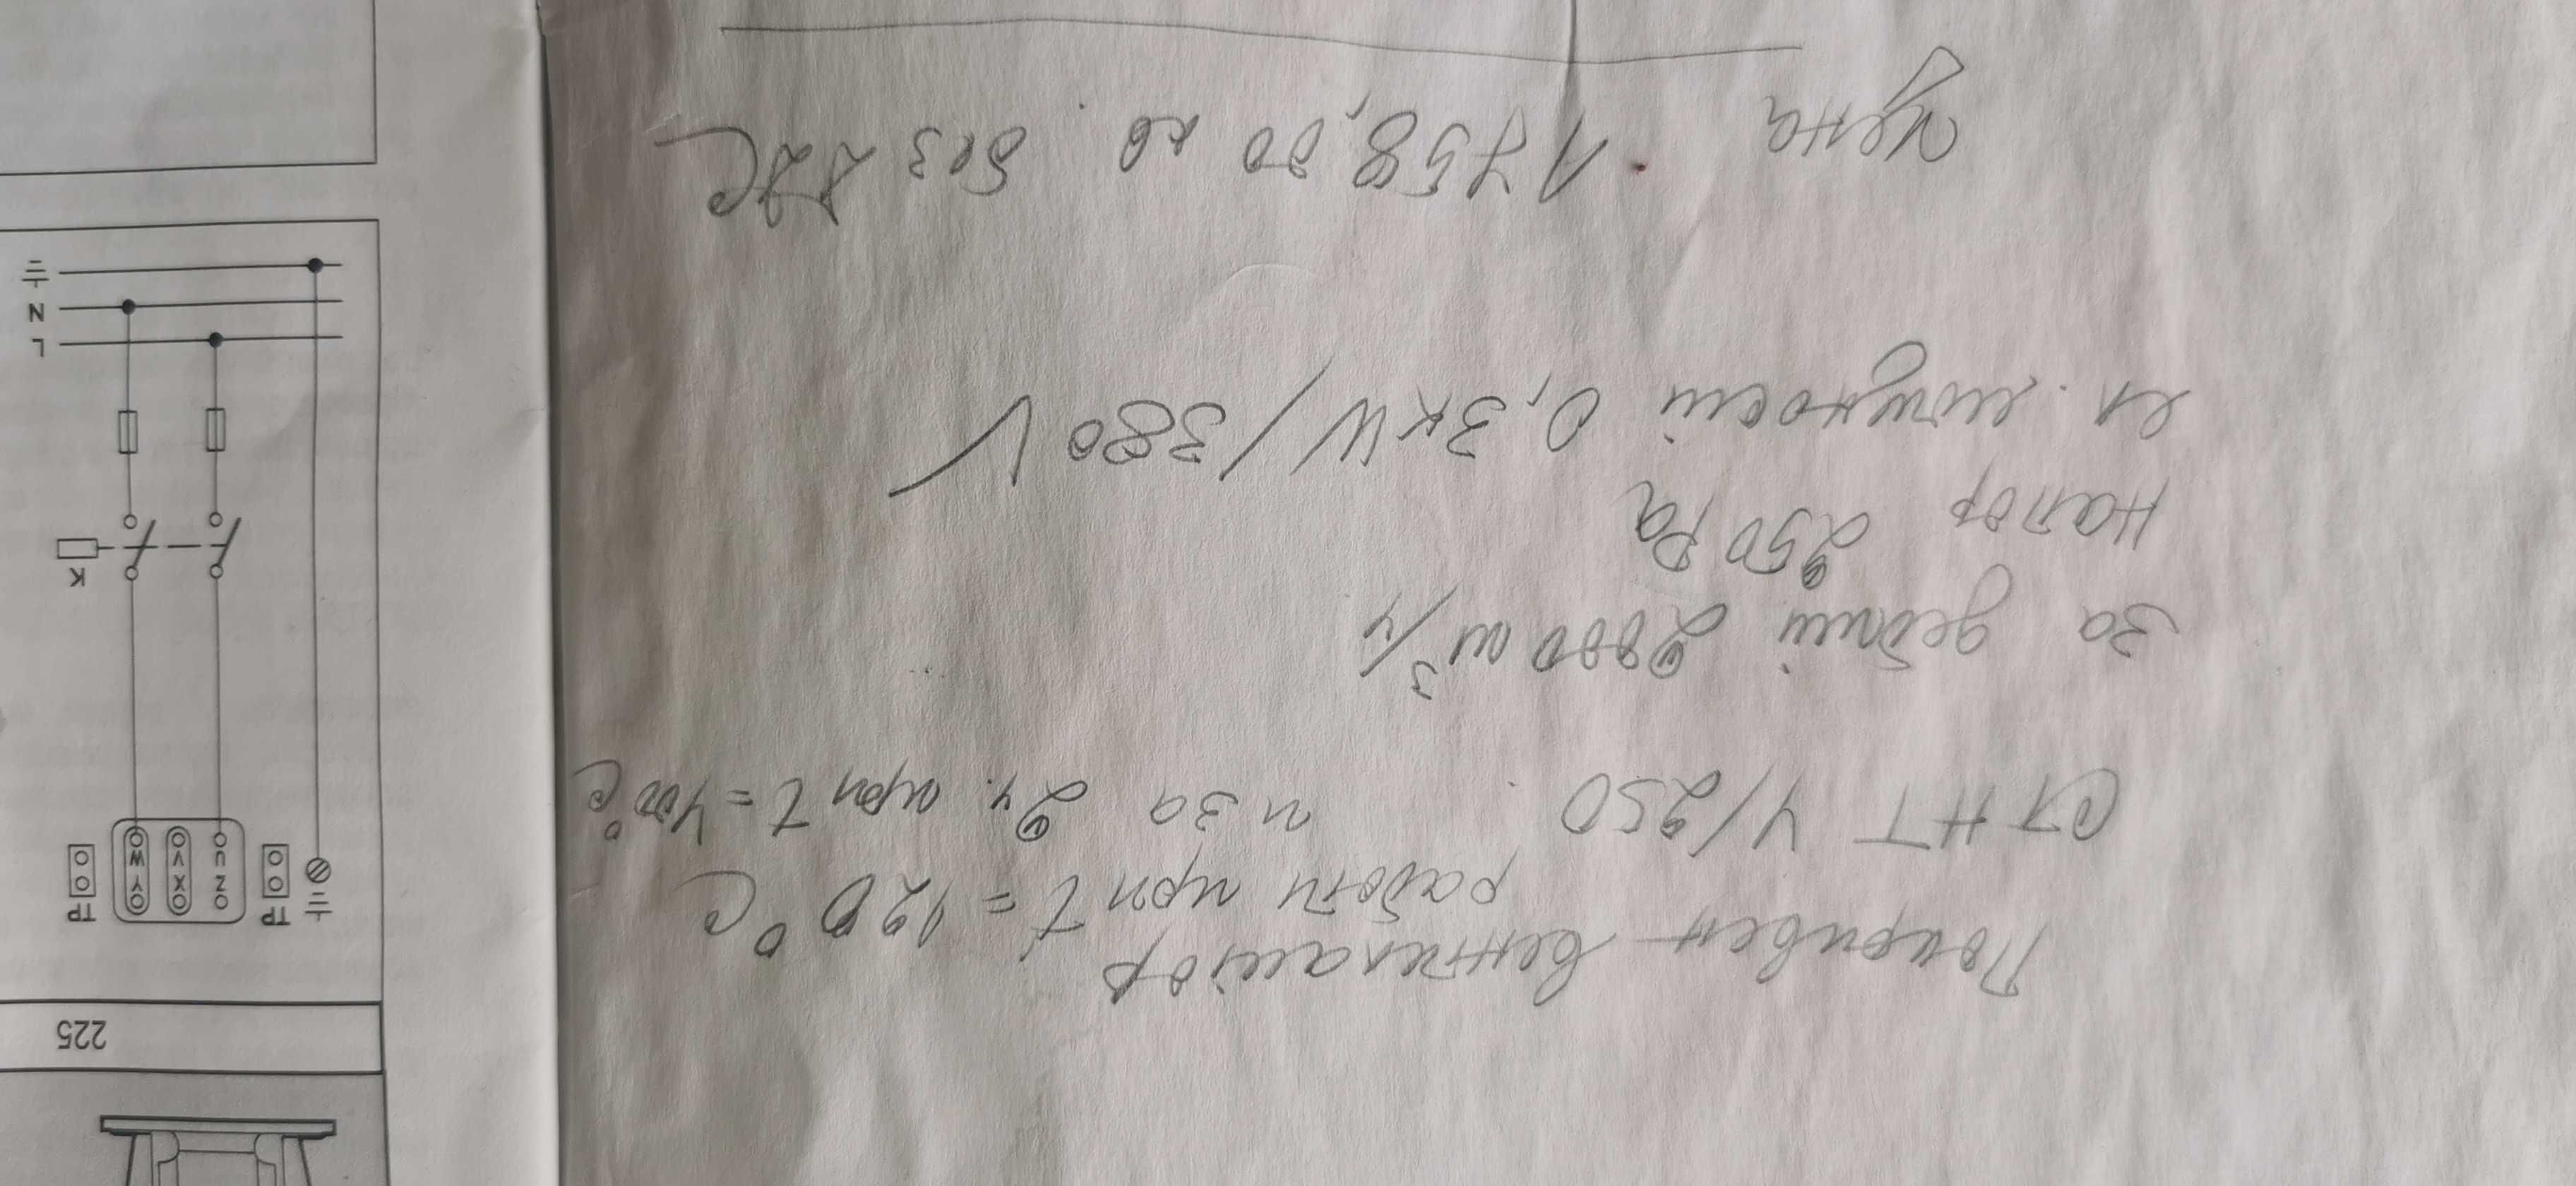 Покривен вентилатор
работи при t = 120 °C
CTHT 4/250
и за 2ч. при t = 400 °C
за дебит 2000 m³/ч
напор 250 Pa
ел. мощност 0,3 kW / 380 V
цена 1758,00 лв. без ДДС
225
TP
TP
U Z
V X
W Y
K
L
N